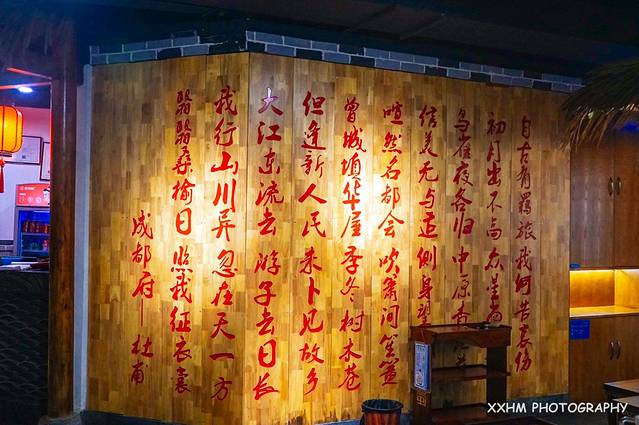 成都府 杜甫
翳翳桑榆日 照我征衣裳
我行山川异 忽在天一方
大江东流去 游子去日长
但逢新人民 未卜见故乡
曾城填华屋 季冬树木苍
喧然名都会 吹箫间笙簧
信美无与适 侧身望
鸟雀夜各归 中原杳
初月出不高 众星尚
自古有羁旅 我何苦哀伤
XXHM PHOTOGRAPHY